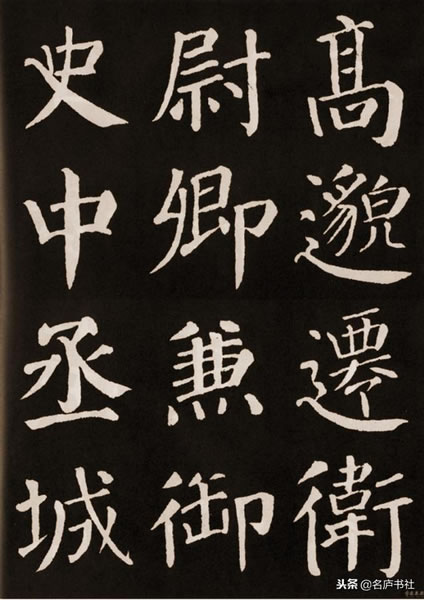 髙邈遷衛
尉卿兼御
史中丞城
头条 @名庐书社